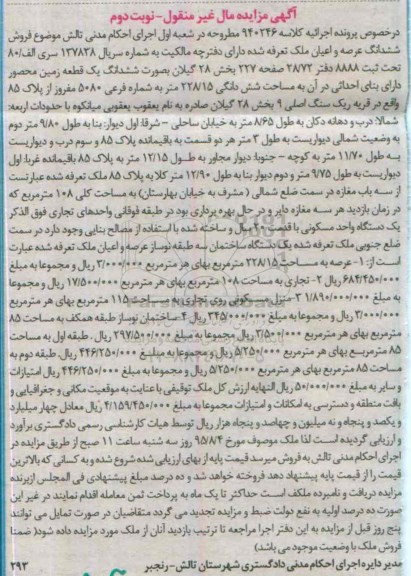 آگهی مزایده مال غیر منقول - نوبت دوم
درخصوص پرونده اجرائیه کلاسه ۹۴۰۲۴۶ مطروحه در شعبه اول اجرای احکام مدنی تالش موضوع فروش
ششدانگ عرصه و اعیان ملک تعرفه شده دارای دفترچه مالکیت به شماره سریال ۱۳۷۸۳۸ سری الف/۸۰
تحت ثبت ۸۸۸۸ دفتر ۲۸/۷۲ صفحه ۲۲۷ بخش ۲۸ گیلان بصورت ششدانگ یک قطعه زمین محصور
دارای بنای احداثی در آن به مساحت شش دانگی ۲۲۸/۱۵ متر به شماره فرعی ۵۰۸۰ مفروز از پلاک ۸۵
واقع در قریه ریک سنگ اصلی ۹ بخش ۲۸ گیلان صادره به نام یعقوب یعقوبی میانکوه با حدودات اربعه:
شمالا: درب و دهانه دکان به طول ۸/۶۵ متر به خیابان ساحلی - شرقا: اول دیوار: بنا به طول ۹/۸۰ متر دوم
به وضعیت شمالی دیواریست به طول ۳ متر هر دو قسمت به باقیمانده پلاک ۸۵ و سوم درب و دیواریست
به طول ۱۱/۷۰ متر به کوچه - جنوبا: دیوار مجاور به طول ۱۲/۱۵ متر به پلاک ۸۵ باقیمانده غربا: اول
دیواریست به طول ۹/۷۵ متر و دوم دیوار بنا به طول ۱۲/۹۰ متر کلا به پلاک ۸۵ ملک تعرفه شده عبارتست
از سه باب مغازه در سمت ضلع شمالی (مشرف به خیابان بهارستان) به مساحت کلی ۱۰۸ مترمربع که
در زمان بازدید هر سه مغازه دایر و در حال بهره برداری بود در طبقه فوقانی واحدهای تجاری فوق الذکر
یک دستگاه واحد مسکونی با قدمت ساخته شده با استفاده از مصالح بنایی وجود دارد در سمت
ضلع جنوبی ملک تعرفه شده یک دستگاه ساختمان سه طبقه نوساز عرصه و اعیان ملک تعرفه شده عبارت
است از: ۱- عرصه به مساحت ۲۲۸/۱۵ مترمربع بهای هر مترمربع ۳/۰۰۰/۰۰۰ ریال و مجموعا به مبلغ
۶۸۴/۴۵۰/۰۰۰ ریال ۲- تجاری به مساحت ۱۰۸ مترمربع بهای هر مترمربع ۱۷/۵۰۰/۰۰۰ ریال و مجموعا
به مبلغ ۱/۸۹۰/۰۰۰/۰۰۰ ۳- منزل مسکونی روی تجاری به مساحت ۱۱۵ مترمربع بهای هر مترمربع
۳/۰۰۰/۰۰۰ ریال و مجموعا به مبلغ ۳۴۵/۰۰۰/۰۰۰ ریال ۴- ساختمان نوساز طبقه همکف به مساحت ۸۵
مترمربع بهای هر مترمربع ۳/۵۰۰/۰۰۰ ریال مجموعا به مبلغ ۲۹۷/۵۰۰/۰۰۰ ریال. طبقه اول به مساحت
۸۵ مترمربع بهای هر مترمربع ۵/۲۵۰/۰۰۰ ریال و مجموعا به مبلغ ۴۴۶/۲۵۰/۰۰۰ ریال. طبقه دوم به
مساحت ۸۵ مترمربع بهای هر مترمربع ۵/۲۵۰/۰۰۰ ریال و مجموعا به مبلغ ۴۴۶/۲۵۰/۰۰۰ ریال امتیازات
و سایر به مبلغ ۵۰/۰۰۰/۰۰۰ ریال النهایه ارزش کل ملک توقیفی با عنایت به موقعیت مکانی و جغرافیایی و
بافت منطقه و دسترسی به امکانات و امتیازات مجموعا به مبلغ ۴/۱۵۹/۴۵۰/۰۰۰ ریال معادل چهار میلیارد
و یکصد و پنجاه و نه میلیون و چهارصد و پنجاه هزار ریال توسط هیات کارشناسی رسمی دادگستری برآورد
و ارزیابی گردیده است لذا ملک موصوف مورخ ۹۵/۸/۴ روز سه شنبه ساعت ۱۱ صبح از طریق مزایده در
اجرای احکام مدنی تالش به فروش میرسد قیمت پایه از بهای ارزیابی شده شروع شده و به کسانی که بالاترین
قیمت را از قیمت پایه پیشنهاد دهد فروخته خواهد شد و ده درصد مبلغ پیشنهادی فی المجلس ازبرنده
مزایده دریافت و نامبرده مکلف است حداکثر تا یک ماه به پرداخت ثمن معامله اقدام نمایند در غیر این
صورت ده درصد اولیه به نفع دولت ضبط و مزایده تجدید می گردد متقاضیان در صورت تمایل می توانند
پنج روز قبل از مزایده به این دفتر اجرا مراجعه تا ترتیب بازدید آنان از ملک مورد مزایده داده شود (ضمنا
فروش ملک با وضعیت موجود می باشد)
مدیر دایره اجرای احکام مدنی دادگستری شهرستان تالش - رنجبر ۲۹۲